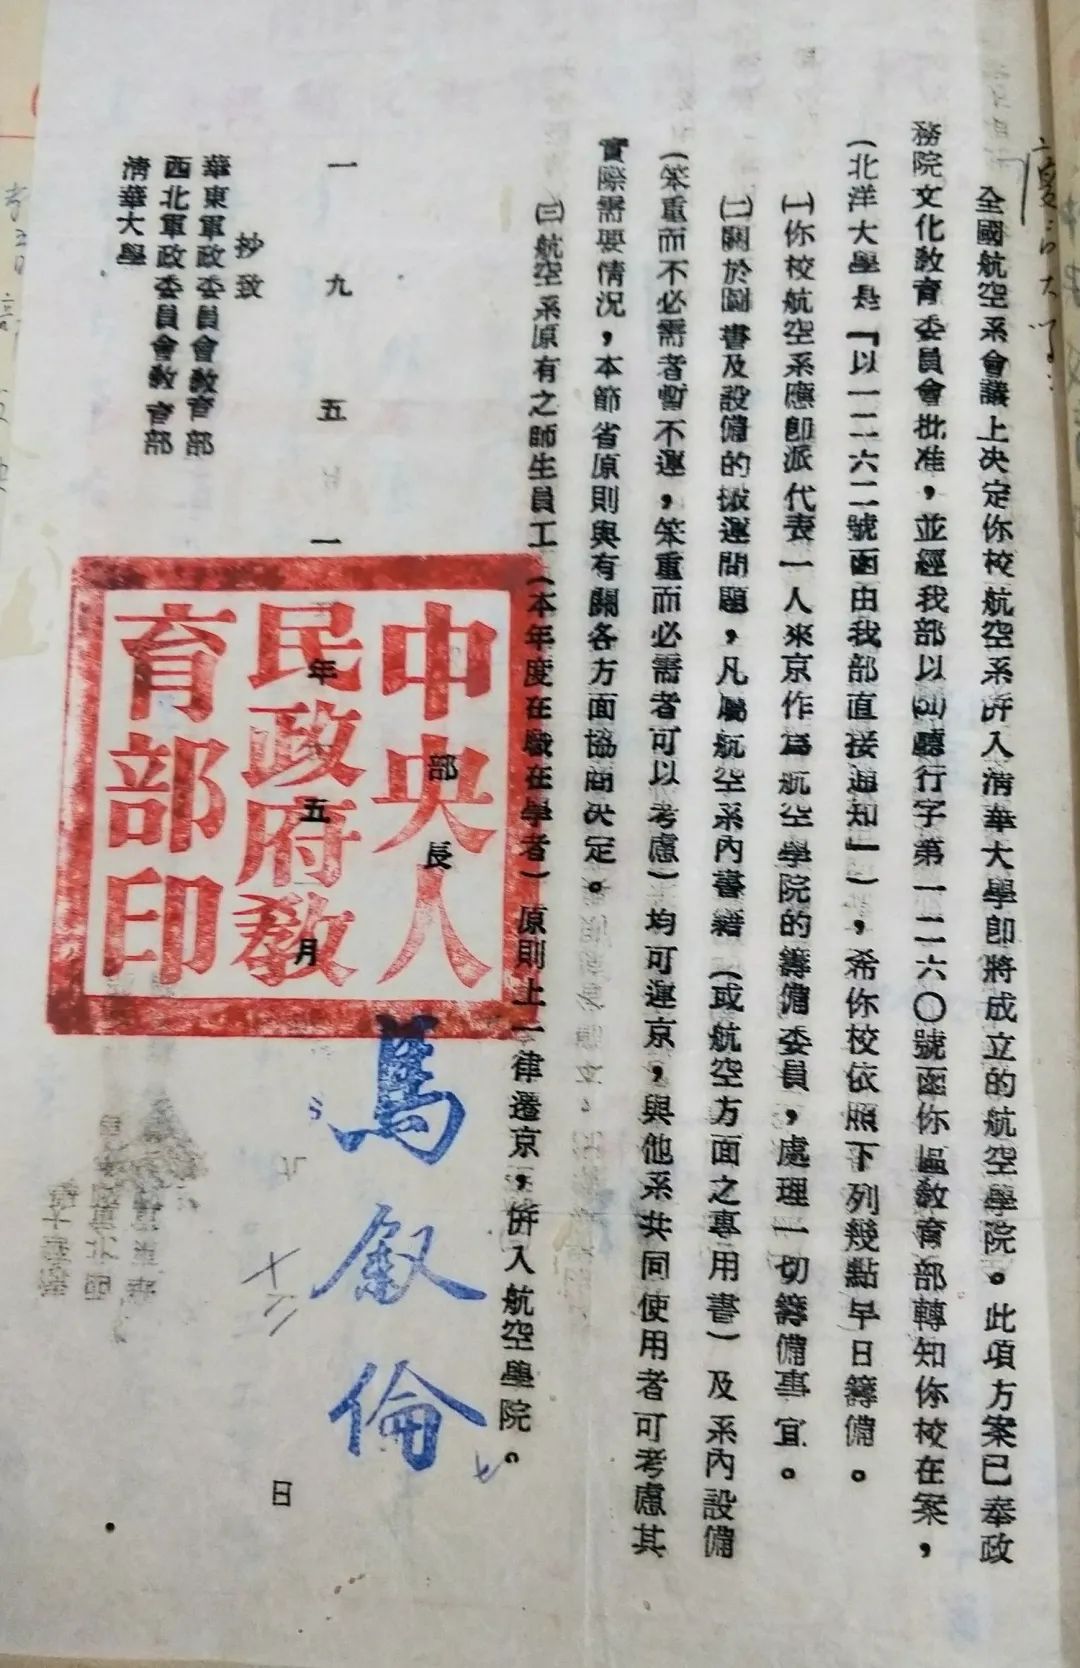 厦门大学：
全國航空系會議上决定你校航空系併入清華大學卽將成立的航空學院。此項方案已奉政
務院文化敎育委員會批准，並經我部以(51)廳行字第一二六〇號函你區敎育部轉知你校在案，
（北洋大學是『以一二六二號函由我部直接通知』），希你校依照下列幾點早日籌備。
㈠你校航空系應卽派代表一人來京作爲航空學院的籌備委員，處理一切籌備事宜。
㈡關於圖書及設備的搬運問題，凡屬航空系內書籍（或航空方面之專用書）及系內設備
（笨重而不必需者暫不運，笨重而必需者可以考慮）均可運京，與他系共同使用者可考慮其
實際需要情况，本節省原則與有關各方面協商决定。
㈢航空系原有之師生員工（本年度在職在學者）原則上一律遷京，併入航空學院。
部長 馬叙倫
中央人民政府敎育部印
一九五一年五月 日
抄致
華東軍政委員會敎育部
西北軍政委員會敎育部
清華大學